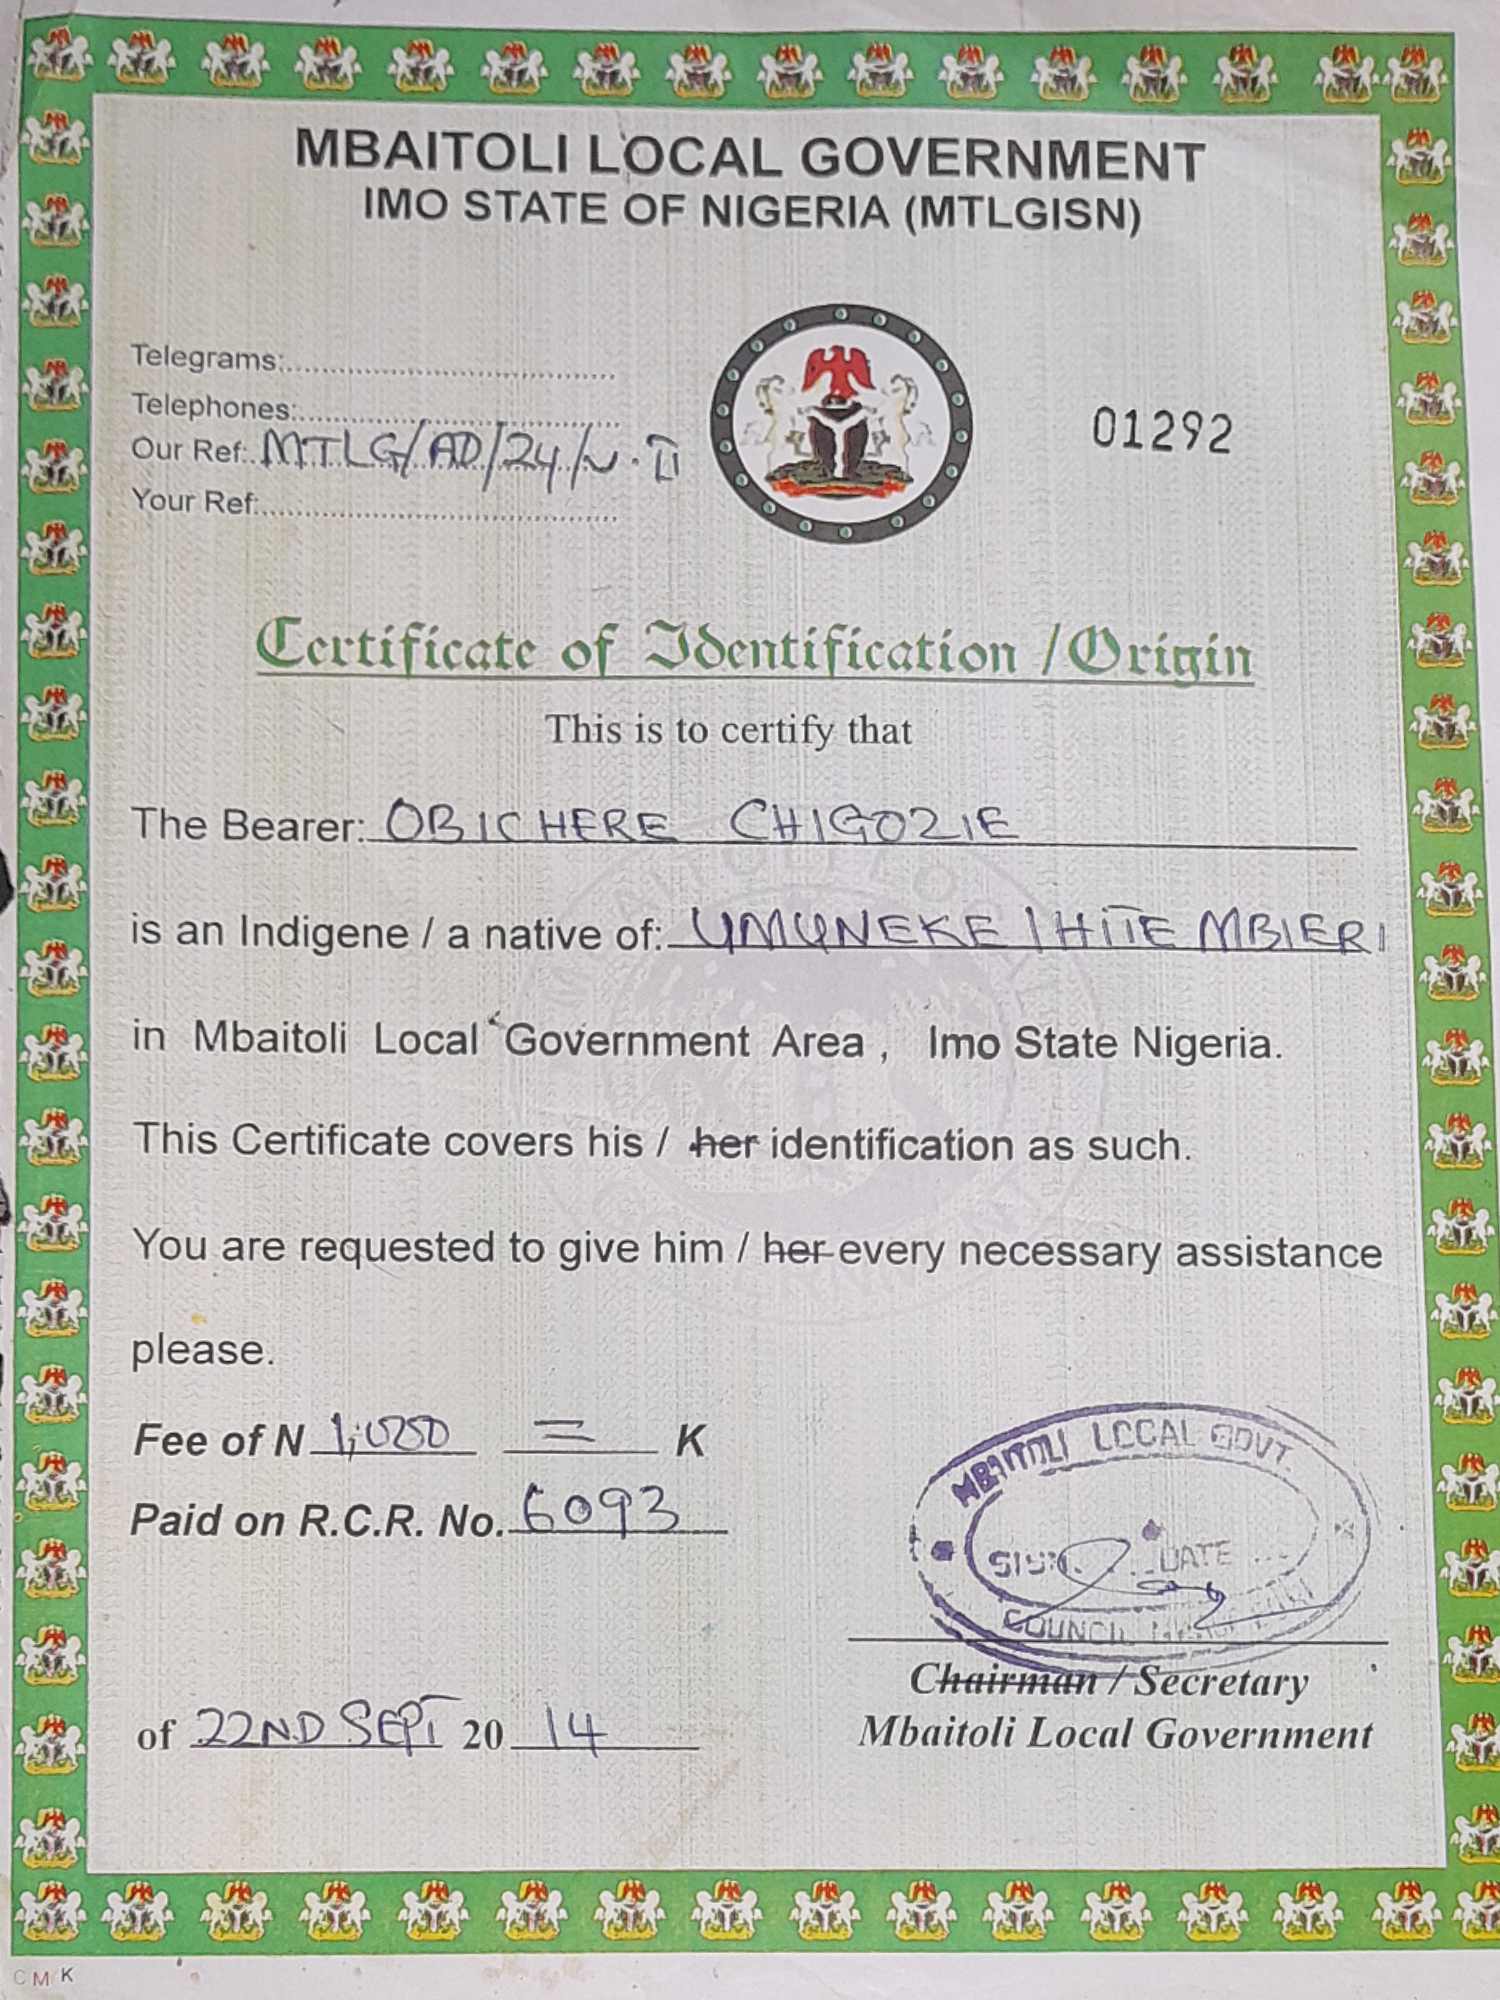 MBAITOLI LOCAL GOVERNMENT
IMO STATE OF NIGERIA (MTLGISN)
Telegrams:
Telephones:
Our Ref: MTLG/AD/24/V.II
Your Ref:
01292
Certificate of Identification / Origin
This is to certify that
The Bearer: OBICHERE CHIGOZIE
is an Indigene / a native of: UMUNEKE IHITE MBIERI
in Mbaitoli Local Government Area, Imo State Nigeria.
This Certificate covers his / her identification as such.
You are requested to give him / her every necessary assistance
please.
Fee of N 1,000 = K
Paid on R.C.R. No. 6093
MBAITOLI LOCAL GOVT.
SIGN. DATE
COUNCIL
Chairman / Secretary
Mbaitoli Local Government
of 22ND SEPT 20 14
C M K